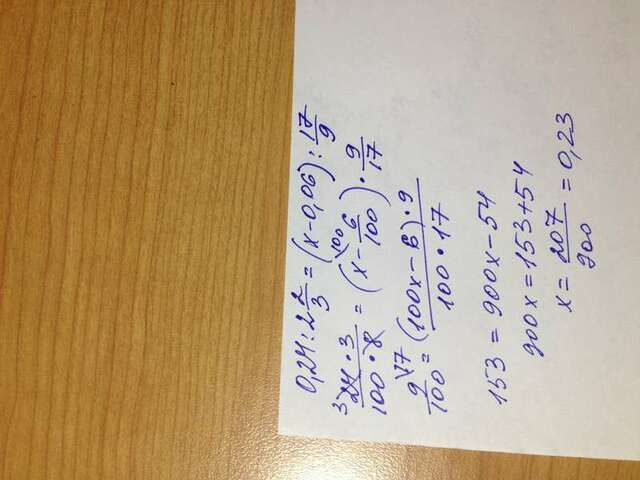 0,24 : 2 2/3 = (x - 0,06) : 17/9
3 24 · 3 / 100 · 8 = (x \100 - 6/100) · 9/17
9/100 \17 = (100x - 6) · 9 / 100 · 17
153 = 900x - 54
900x = 153 + 54
x = 207/900 = 0,23